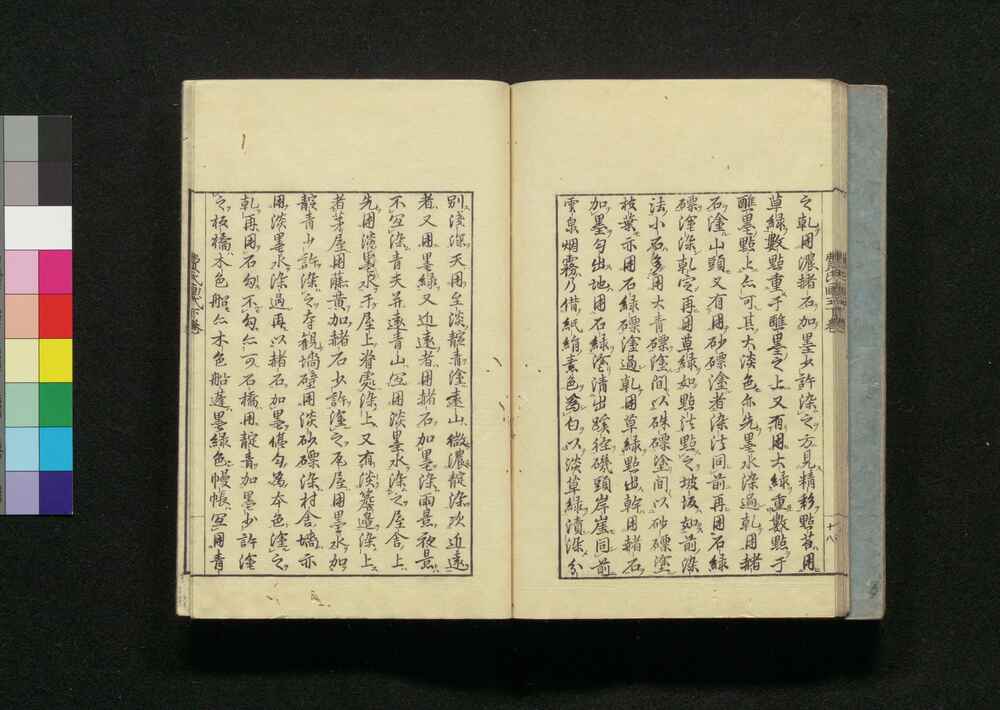 之乾用濃赭石加墨少許染之方見精彩點苔用
草綠數點重于醮墨之上又有用大綠重數點于
醮墨點上亦可其大淡色亦先墨水染過乾用赭
石塗山頭又有用砂磦塗者染法同前再用石綠
磦塗染乾定再用草綠如點法點之坡坂如前染
法小石多用大青磦塗間以硃磦塗間以砂磦塗
枝葉亦用石綠磦塗過乾用草綠點出幹用赭石
加墨勾出地用石綠塗清出蹊徑磯頭岸崖同前
雲泉烟霧乃借紙絹素色為白以淡草綠漬染分
十八
別淺深天用至淡靛青塗遠山微濃靛染次近遠
者又用墨綠又近遠者用赭石加墨染雨景夜景
不宜染青天并遠青山宜用淡墨水染之屋舍上
先用淡墨水于屋上脊處染上又有淡簷邊染上
者茅屋用藤黃加赭石少許塗之瓦屋用墨水加
靛青少許染之寺觀墻壁用淡砂磦染村舍墻亦
用淡墨水染過再以赭石加墨儘勾為本色塗之
乾再用石勾不勾亦可石橋用靛青加墨少許塗
之板橋木色船亦木色船蓬墨綠色幔帳宜用青